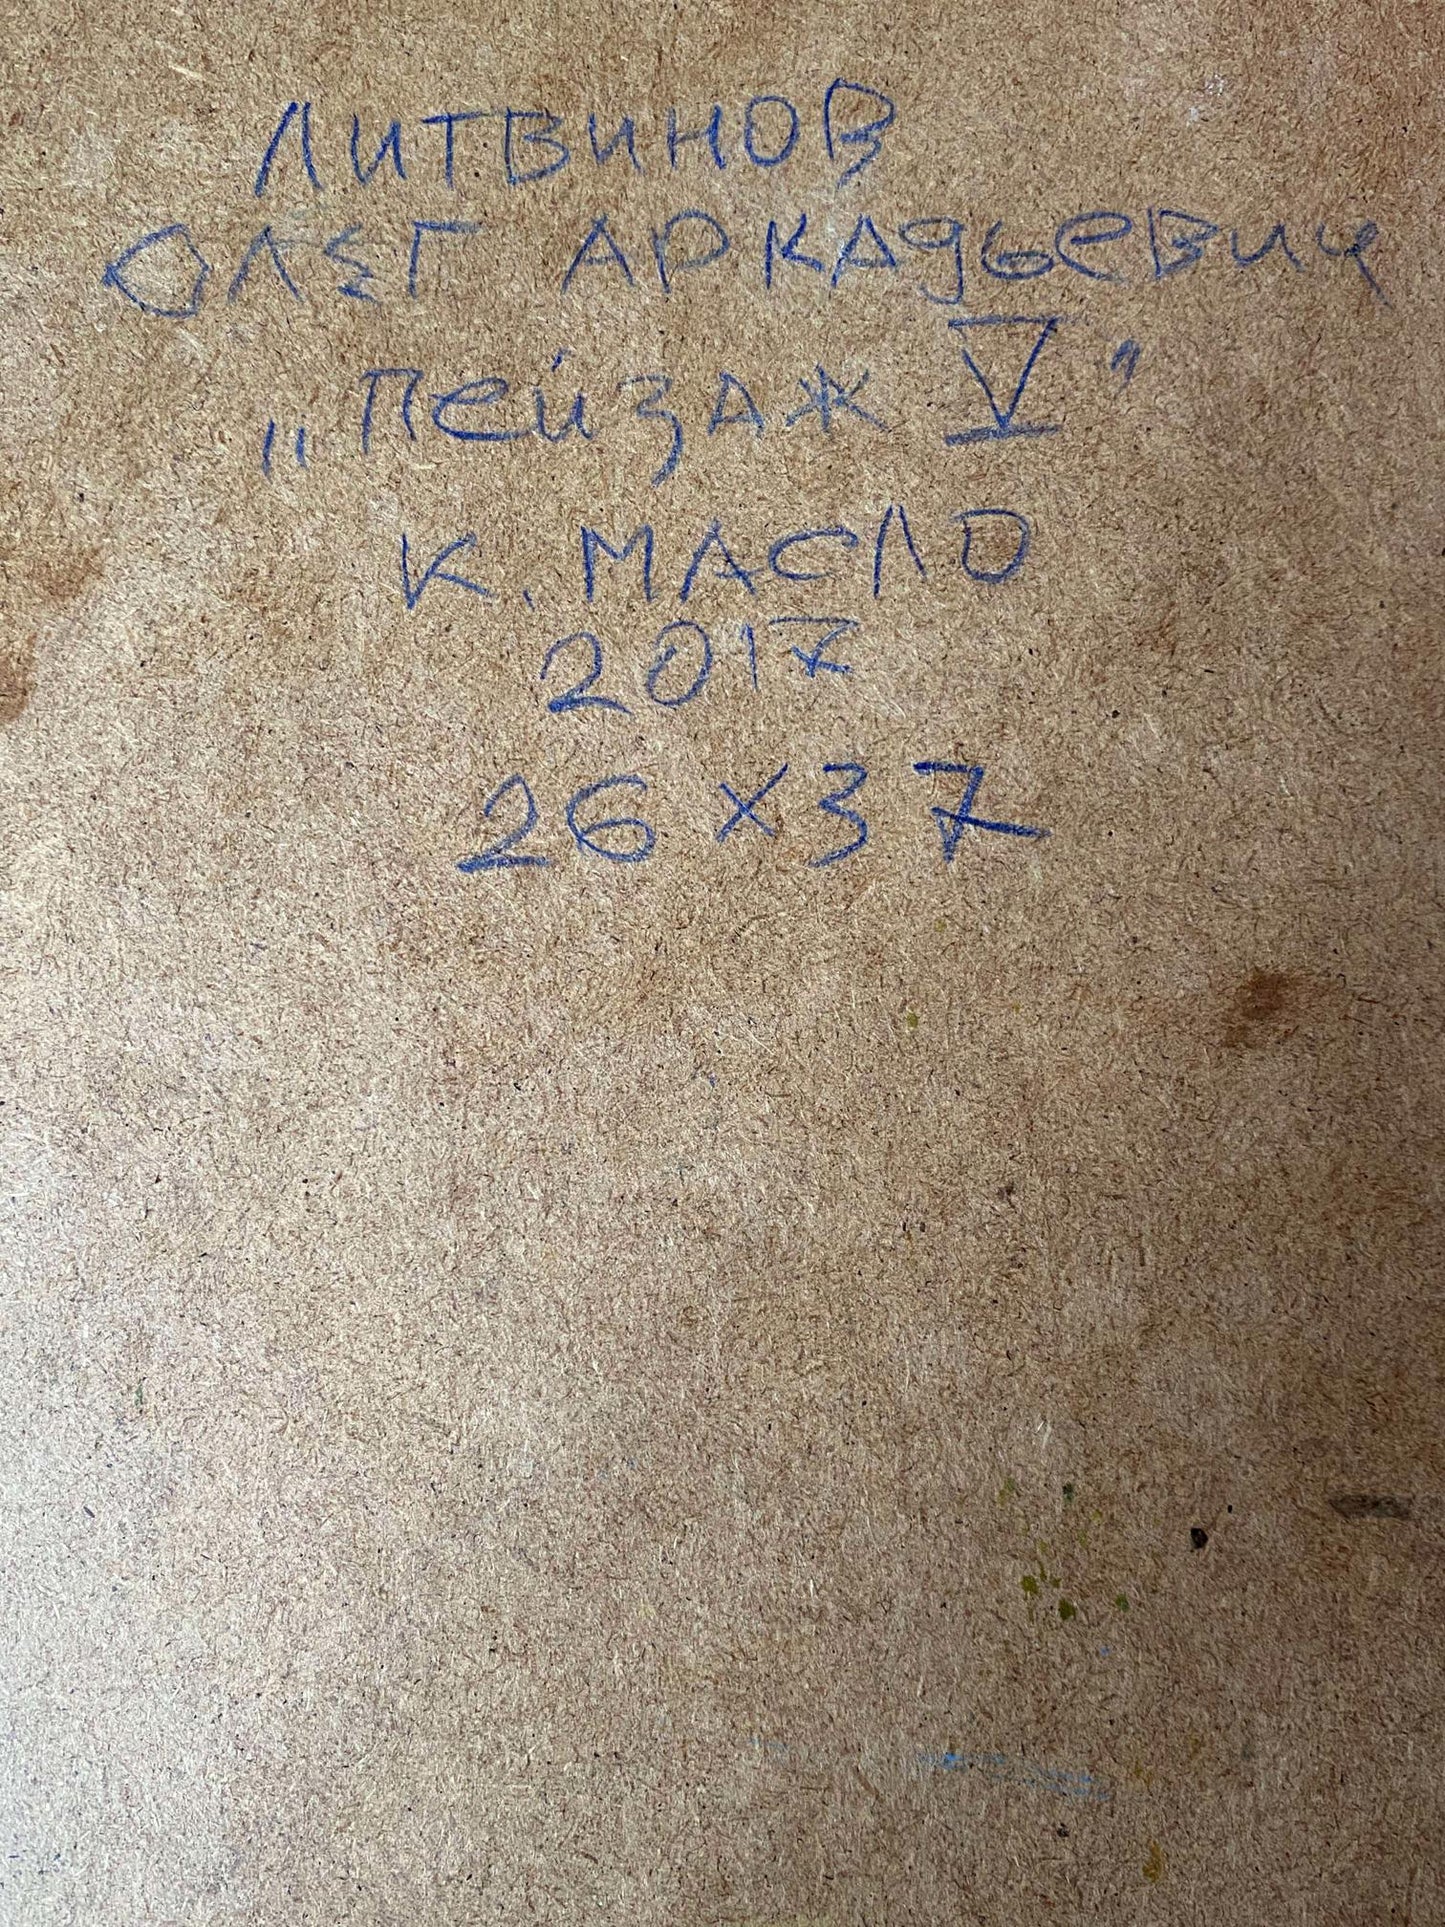 ЛИТВИНОВ
ОЛЕГ АРКАДЬЕВИЧ
„Пейзаж V"
К. МАСЛО
2017
26 x 37